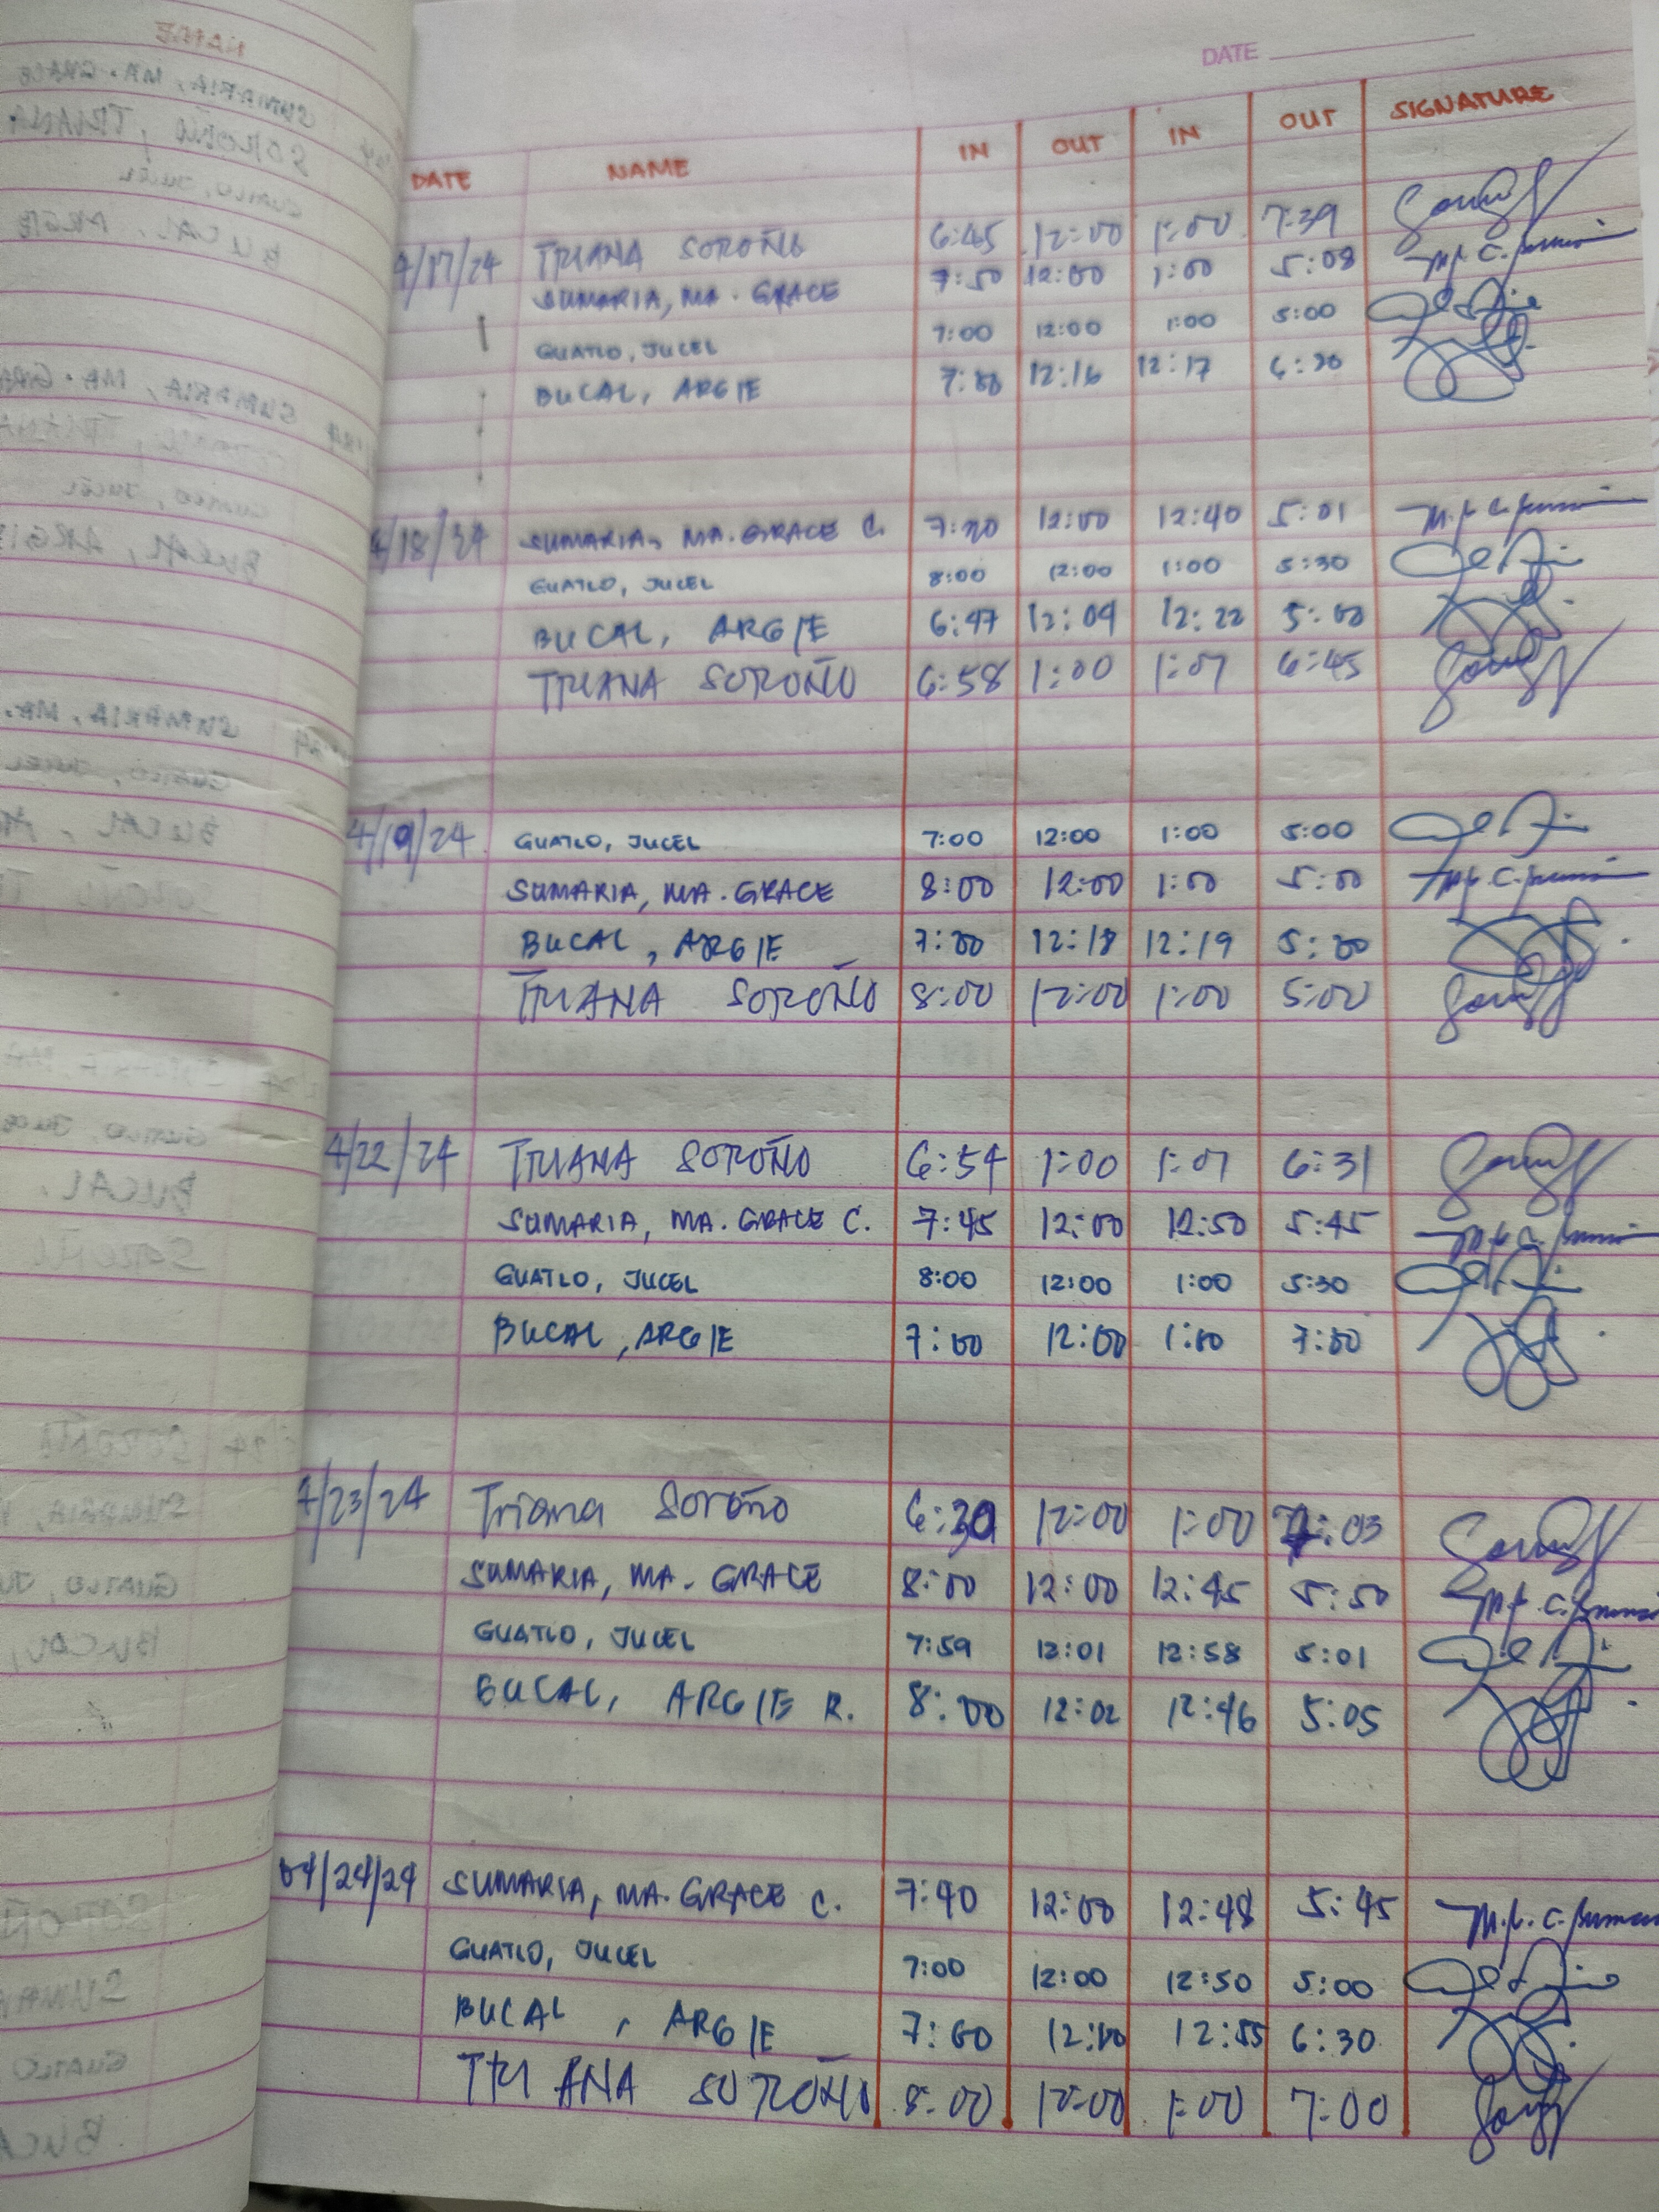 DATE
DATE NAME IN OUT IN OUT SIGNATURE
4/17/24 TRIANA SOROÑO 6:45 12:00 1:00 7:39
SUMARIA, MA. GRACE 7:50 12:00 1:00 5:08
GUATLO, JUCEL 7:00 12:00 1:00 5:00
BUCAL, ARGIE 7:00 12:16 12:17 6:30
4/18/24 SUMARIA, MA. GRACE C. 7:20 12:00 12:40 5:01
GUATLO, JUCEL 8:00 12:00 1:00 5:30
BUCAL, ARGIE 6:47 12:09 12:22 5:00
TRIANA SOROÑO 6:58 1:00 1:07 6:45
4/19/24 GUATLO, JUCEL 7:00 12:00 1:00 5:00
SUMARIA, MA. GRACE 8:00 12:00 1:00 5:00
BUCAL, ARGIE 7:00 12:18 12:19 5:00
TRIANA SOROÑO 8:00 12:00 1:00 5:00
4/22/24 TRIANA SOROÑO 6:54 1:00 1:07 6:31
SUMARIA, MA. GRACE C. 7:45 12:00 12:50 5:45
GUATLO, JUCEL 8:00 12:00 1:00 5:30
BUCAL, ARGIE 7:00 12:00 1:00 7:00
4/23/24 Triana Soroño 6:30 12:00 1:00 7:03
SUMARIA, MA. GRACE 8:00 12:00 12:45 5:50
GUATLO, JUCEL 7:59 12:01 12:58 5:01
BUCAL, ARGIE R. 8:00 12:02 12:46 5:05
04/24/24 SUMARIA, MA. GRACE C. 7:40 12:00 12:48 5:45
GUATLO, JUCEL 7:00 12:00 12:50 5:00
BUCAL, ARGIE 7:00 12:00 12:55 6:30
TRIANA SOROÑO 8:00 12:00 1:00 7:00